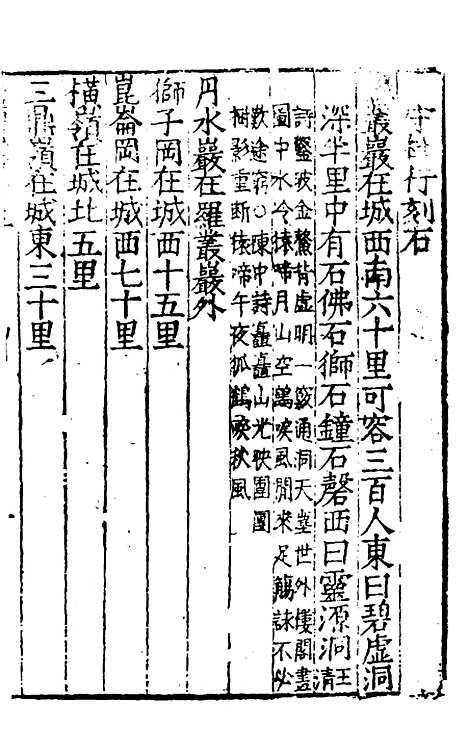 行刻石
叢巖在城西南六十里可容三百人東曰碧虛洞
深半里中有石佛石獅石鐘石磬西曰靈源洞王清
詩鑿破金鰲背虛明一竅通洞天塵世外樓閣畫
圖中水冷猿啼月山空鶴唳風閒來足觴詠不必
歎途窮○陳中詩矗矗山光映團團
樹影重斷猿啼午夜孤鶴唳秋風
丹水巖在羅叢巖外
獅子岡在城西十五里
崑崙岡在城西七十里
橫嶺在城北五里
三鼎嶺在城東三十里